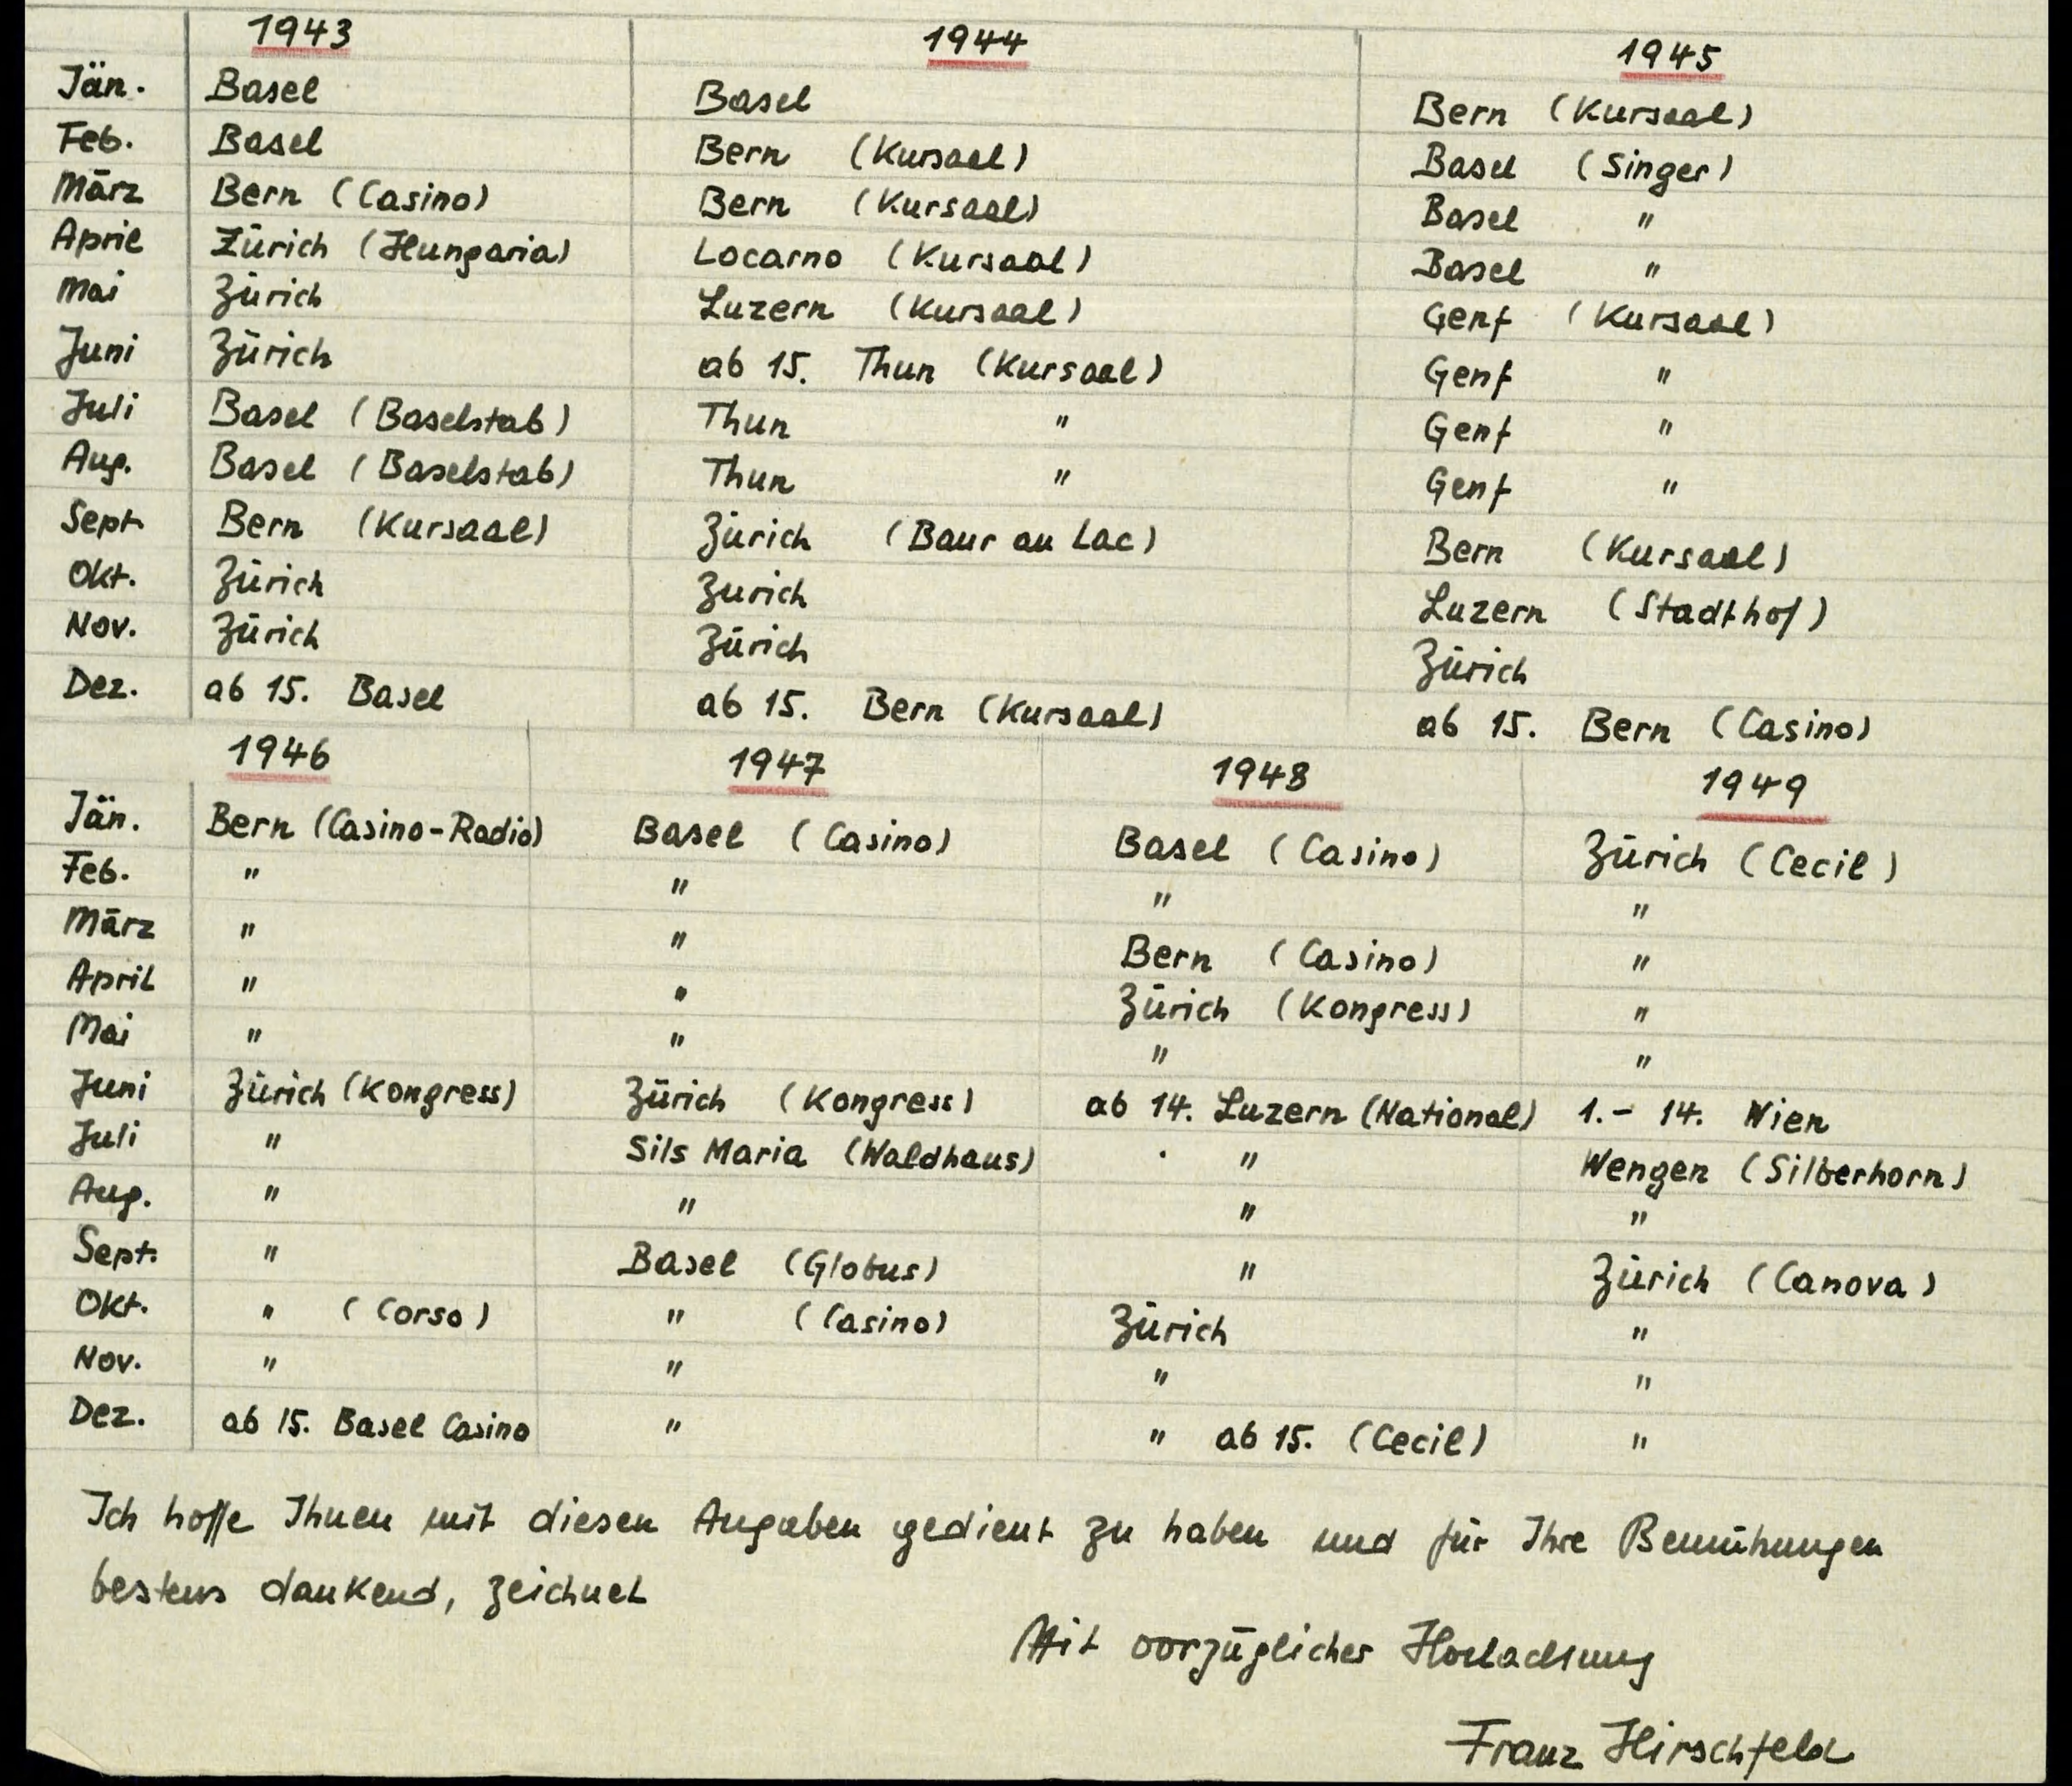 1943 1944 1945
Jän. Basel Basel Bern (Kursaal)
Feb. Basel Bern (Kursaal) Basel (Singer)
März Bern (Casino) Bern (Kursaal) Basel "
April Zürich (Hungaria) Locarno (Kursaal) Basel "
Mai Zürich Luzern (Kursaal) Genf (Kursaal)
Juni Zürich ab 15. Thun (Kursaal) Genf "
Juli Basel (Baselstab) Thun " Genf "
Aug. Basel (Baselstab) Thun " Genf "
Sept. Bern (Kursaal) Zürich (Baur au Lac) Bern (Kursaal)
Okt. Zürich Zürich Luzern (Stadthof)
Nov. Zürich Zürich Zürich
Dez. ab 15. Basel ab 15. Bern (Kursaal) ab 15. Bern (Casino)
1946 1947 1948 1949
Jän. Bern (Casino-Radio) Basel (Casino) Basel (Casino) Zürich (Cecil)
Feb. " " " "
März " " Bern (Casino) "
April " " Zürich (Kongress) "
Mai " " " "
Juni Zürich (Kongress) Zürich (Kongress) ab 14. Luzern (National) 1.- 14. Wien
Juli " Sils Maria (Waldhaus) " Wengen (Silberhorn)
Aug. " " " "
Sept. " Basel (Globus) " Zürich (Canova)
Okt. " (Corso) " (Casino) Zürich "
Nov. " " " "
Dez. ab 15. Basel Casino " " ab 15. (Cecil) "
Ich hoffe Ihnen mit diesen Angaben gedient zu haben und für Ihre Bemühungen
bestens dankend, zeichnet
Mit vorzüglicher Hochachtung
Franz Hirschfeld